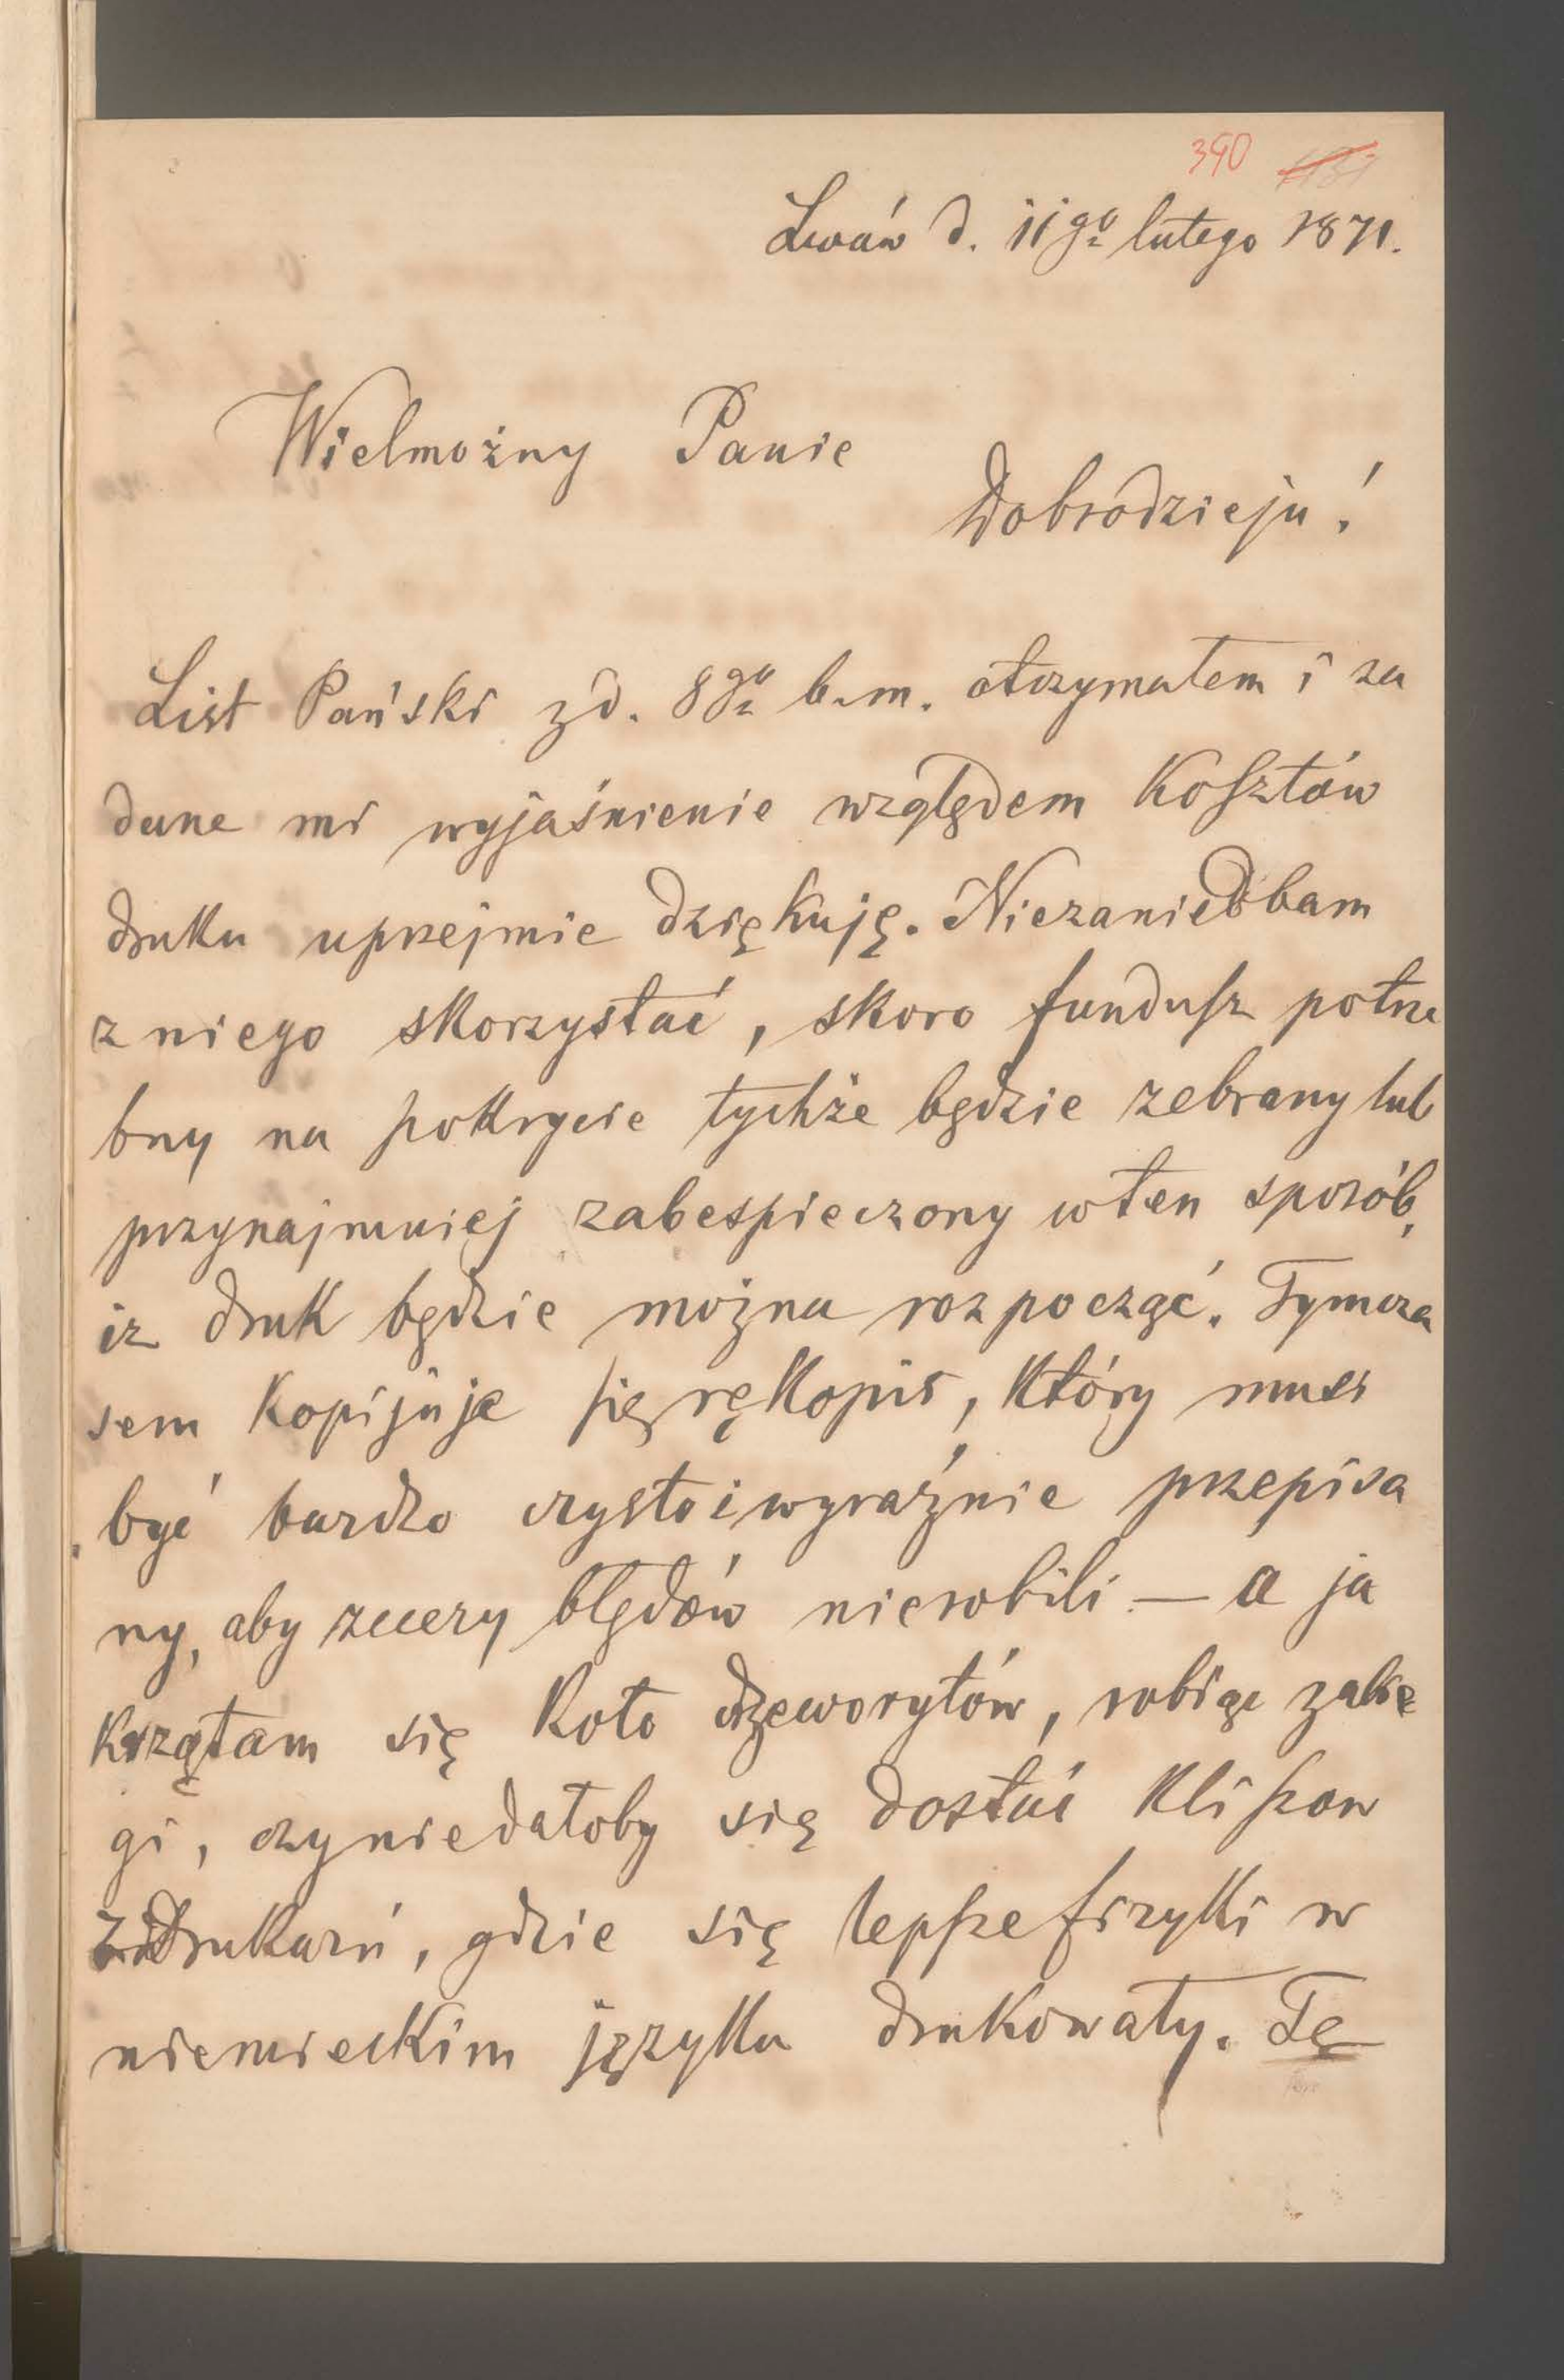 390
Lwów d. 11go lutego 1871.
Wielmożny Panie
Dobrodzieju!
List Pański z d. 8go b. m. otrzymałem i za
dane mi wyjaśnienie względem kosztów
druku uprzejmie dziękuję. Niezaniedbam
z niego skorzystać, skoro fundusz potrze
bny na pokrycie tychże będzie zebrany lub
przynajmniej zabespieczony w ten sposób,
iż druk będzie można rozpocząć. Tymcza
sem kopijuje się rękopis, który musi
być bardzo czysto i wyraźnie przepisa
ny, aby zecery błędów nierobili — a ja
krzątam się koło drzeworytów, robiąc zabie
gi, czyniedałoby się dostać kliszow
z drukarń, gdzie się lepsze fizyki w
niemieckim języku drukowały. Tę